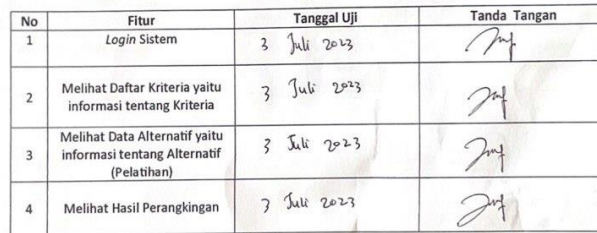 No Fitur Tanggal Uji Tanda Tangan
1 Login Sistem 3 Juli 2023
2 Melihat Daftar Kriteria yaitu
informasi tentang Kriteria 3 Juli 2023
3 Melihat Data Alternatif yaitu
informasi tentang Alternatif
(Pelatihan) 3 Juli 2023
4 Melihat Hasil Perangkingan 3 Juli 2023